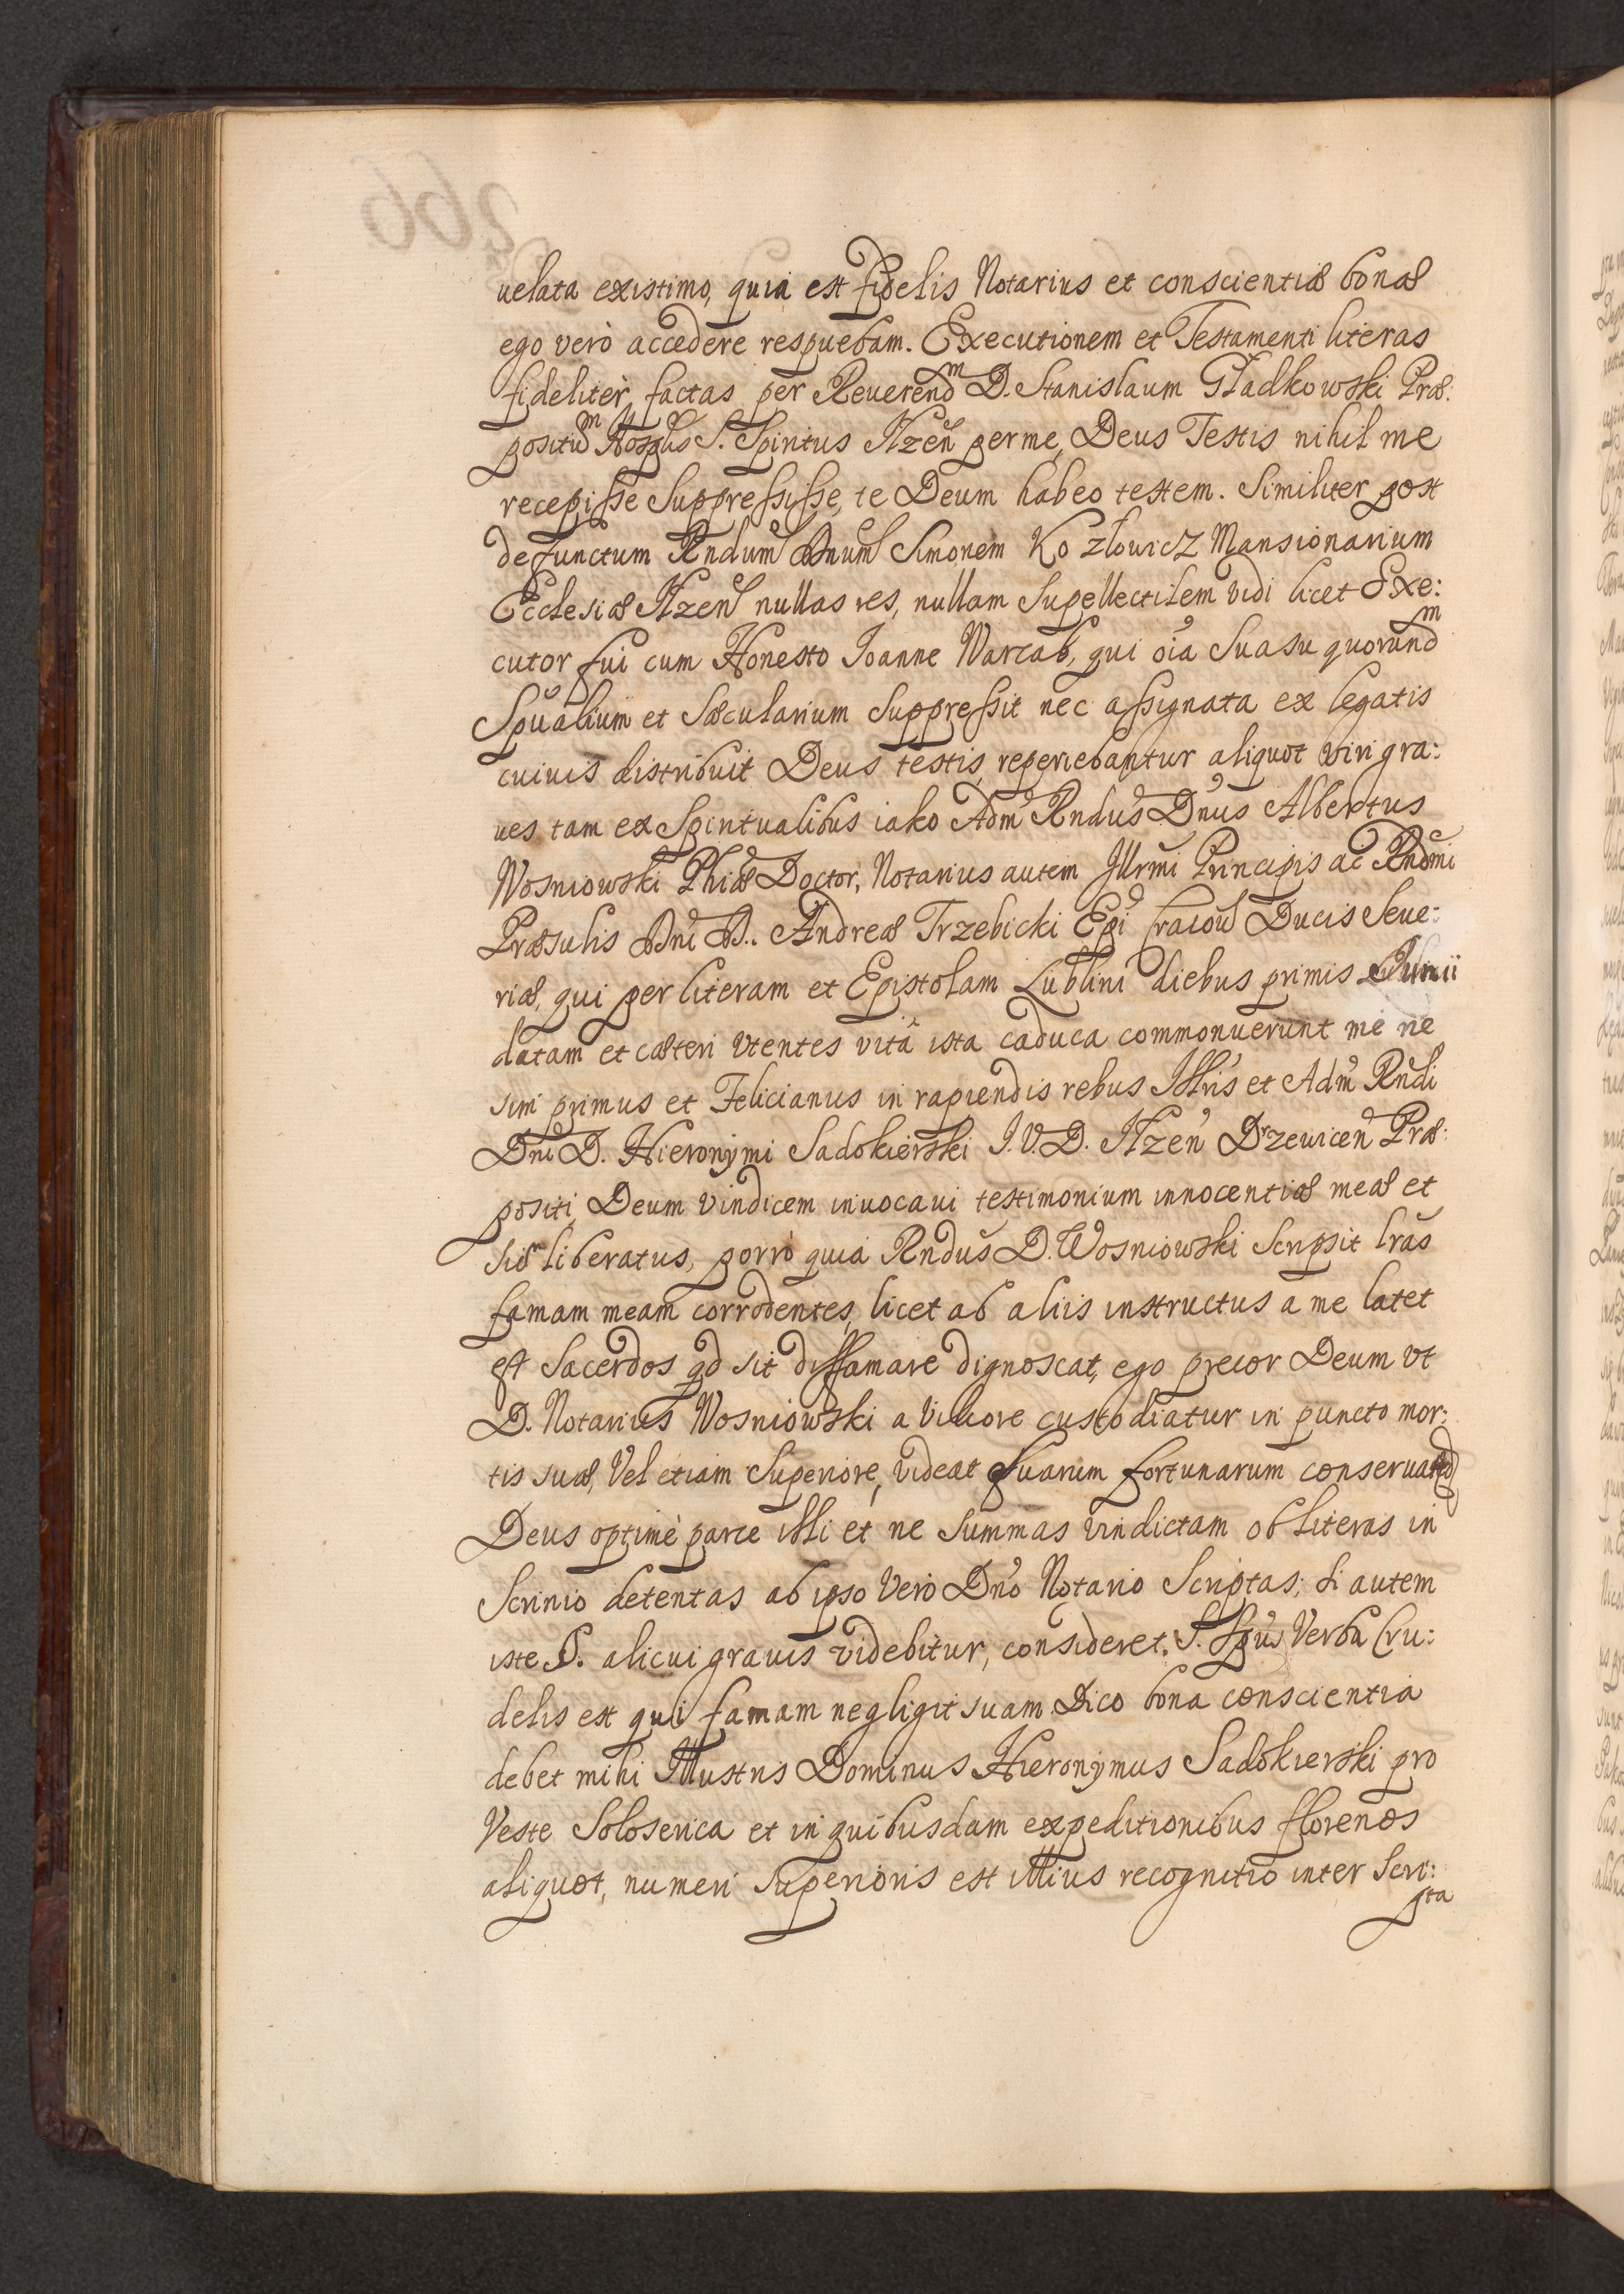 uelata existimo, quia est fidelis Notarius et conscientiæ bonæ
ego verò accedere respuebam. Executionem et Testamenti literas
fideliter factas per Reuerendm D. Stanislaum Gładkowski Præ:
positum Hosplis S. Spiritus Ilzen per me, Deus Testis nihil me
recepisse Suppressisse, te Deum habeo testem. Similiter post
defunctum Rndum Dnum Simonem Kozłowicz Mansionarium
Ecclesiæ Ilzen nullas res, nullam Supellectilem vidi licet Exe:
cutor fui cum Honesto Ioanne Warcab, qui oia Suasu quorundm
Spualium et Sæcularium Suppressit nec assignata ex legatis
cuiuis distribuit Deus testis, reperiebantur aliquot viri gra:
ues tam ex Spiritualibus iako Adm Rndus Dnus Albertus
Wosniowski Phiæ Doctor, Notarius autem Illrmi Principis ac Rndmi
Præsulis Dni D. Andreæ Trzebicki Epi Cracou Ducis Seue:
riæ, qui per literam et Epistolam Lublini diebus primis Iunii
datam et cæteri vtentes vitâ ista caduca commonuerunt me ne
sim primus et Felicianus in rapiendis rebus Illris et Adm Rndi
Dni D. Hieronymi Sadokierski I.V.D. Ilzen Drzewicen Præ:
positi, Deum vindicem inuocaui testimonium innocentiæ meæ et
sic liberatus, porrò quia Rndus D. Wosniowski Scripsit lras
famam meam corrodentes, licet ab aliis instructus a me latet
est Sacerdos qd sit diffamare dignoscat, ego precor Deum vt
D. Notarius Wosniowski a liuore custodiatur in puncto mor:
tis suæ, Vel etiam Superiore, videat suarum fortunarum conseruatio
Deus optimè parce illi et ne Summas vindictam ob literas in
Scrinio detentas ab ipso Verò Dno Notario Scriptas; Si autem
iste S. alicui grauis videbitur, consideret. S. Spus Verba Cru:
delis est qui famam negligit suam. Dico bona conscientia
debet mihi Illustris Dominus Hieronymus Sadokierski pro
Veste Soloserica et in quibusdam expeditionibus florenos
aliquot, numeri Superioris est illius recognitio inter Scri:
pta